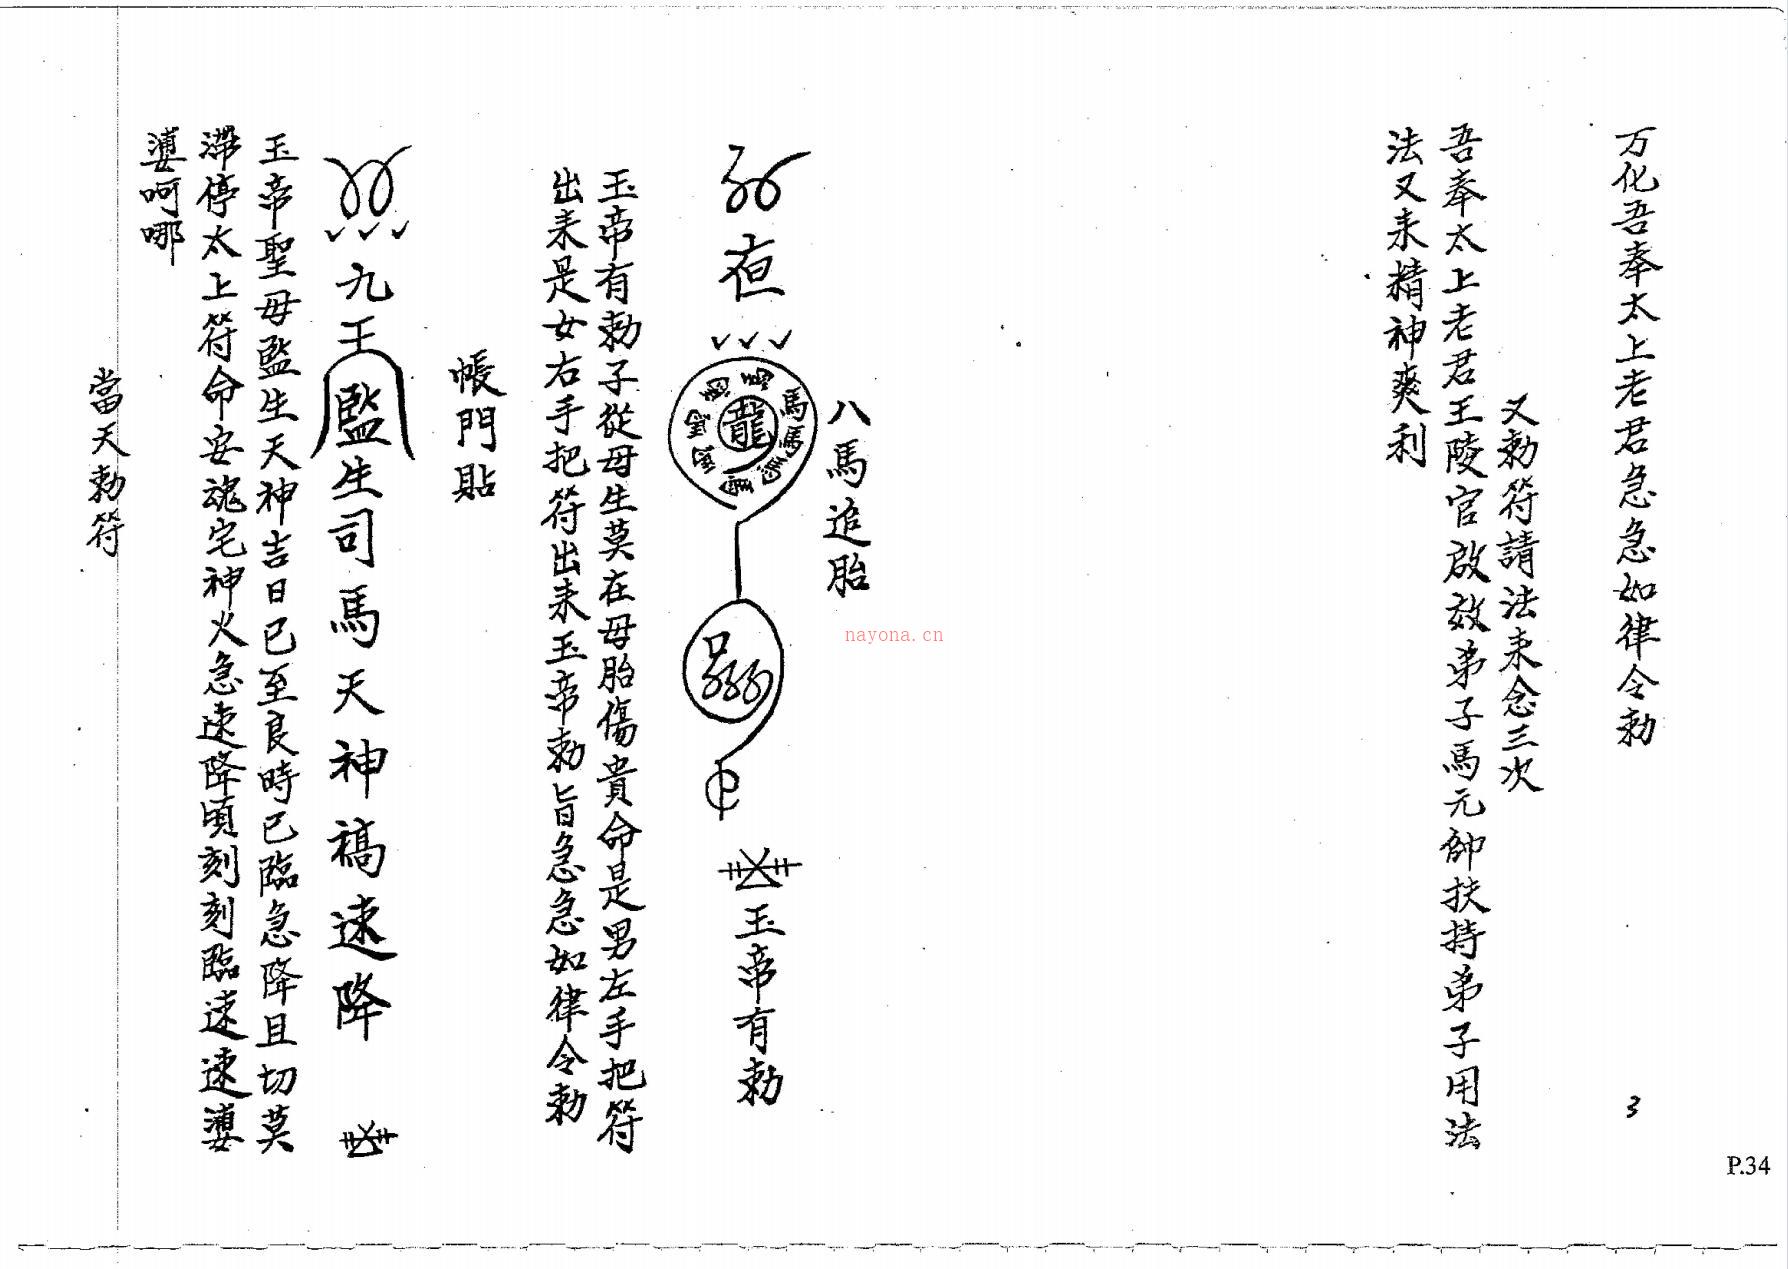 万化吾奉太上老君急急如律令勅
3
P.34
又勅符請法耒念三次
吾奉太上老君王陵官啟效弟子馬元帥扶持弟子用法
法又耒精神爽利
八馬追胎
馬馬馬
龍
玉帝有勅
玉帝有勅子從母生莫在母胎傷貴命是男左手把符
出耒是女右手把符出耒玉帝勅旨急急如律令勅
帳門貼
九王監生司馬天神福速降
玉帝聖母監生天神吉日已至良時已臨急降且切莫
滯停太上符命安魂宅神火急速降頃刻刻臨速速
呵哪
當天勅符
nayona.cn